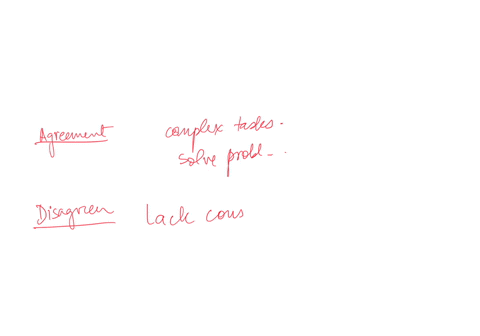 Agreement complex tasks.
solve probl...
Disagreem lack cons